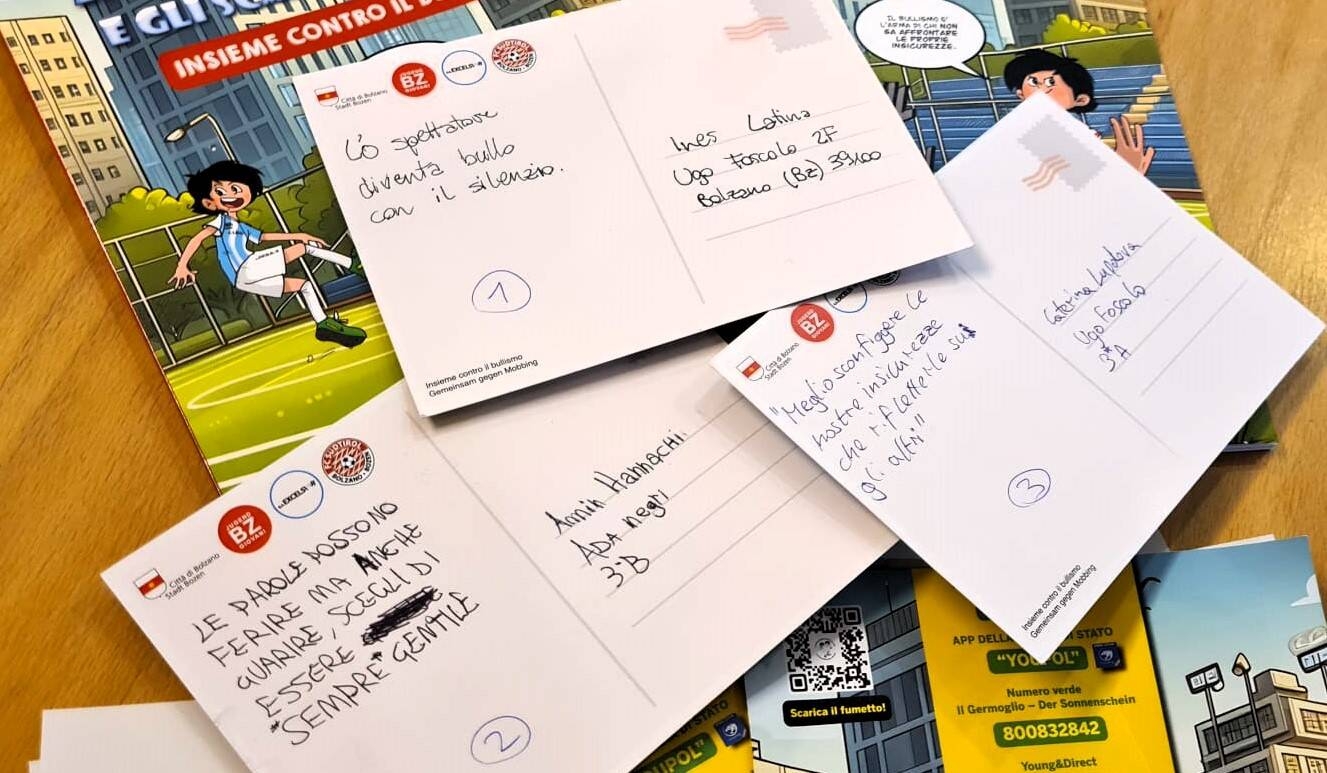 E GLI
INSIEME CONTRO IL
IL BULLISMO E'
L'ARMA DI CHI NON
SA AFFRONTARE
LE PROPRIE
INSICUREZZE.
Città di Bolzano
Stadt Bozen
JUGEND
BZ
GIOVANI
EXCELSIOR
FC SÜDTIROL
BOLZANO - BOZEN
Lo spettatore
diventa bullo
con il silenzio.
1
Insieme contro il bullismo
Gemeinsam gegen Mobbing
Ines Latina
Ugo Foscolo 2F
Bolzano (BZ) 39100
Città di Bolzano
Stadt Bozen
JUGEND
BZ
GIOVANI
EXCELSIOR
FC SÜDTIROL
BOLZANO - BOZEN
LE PAROLE POSSONO
FERIRE MA ANCHE
GUARIRE, SCEGLI DI
ESSERE
*SEMPRE* GENTILE
2
Amin Hannachi
ADA negri
3°B
Città di Bolzano
Stadt Bozen
BZ
GIOVANI
"Meglio sconfiggere le
nostre insicurezze
che rifletterle su
gli altri"
3
Insieme contro il bullismo
Gemeinsam gegen Mobbing
Caterina
Ugo Foscolo
3°A
Scarica il fumetto!
DI STATO
YOUPOL"
APP DELLA DI STATO
"YOUPOL"
Numero verde
Il Germoglio – Der Sonnenschein
800832842
Young&Direct